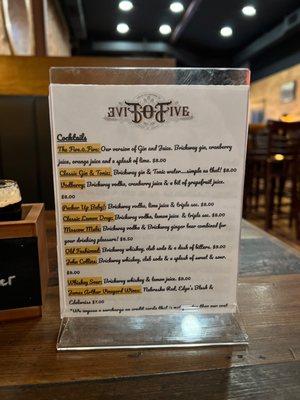 FIVE TO FIVE
Cocktails
The Five.o.Five: Our version of Gin and Juice. Brickway gin, cranberry
juice, orange juice and a splash of lime. $8.00
Classic Gin & Tonic: Brickway gin & Tonic water....simple as that! $8.00
Vodberry: Brickway vodka, cranberry juice & a bit of grapefruit juice.
$8.00
Pucker Up Baby: Brickway vodka, lime juice & triple sec. $8.00
Classic Lemon Drop: Brickway vodka, lemon juice & triple sec. $8.00
Moscow Mule: Brickway vodka & Brickway ginger beer combined for
your drinking pleasure! $8.50
Old Fashioned: Brickway whiskey, club soda & a dash of bitters. $9.00
John Collins: Brickway whiskey, club soda & a splash of sweet & sour.
$9.00
Whiskey Sour: Brickway whiskey & lemon juice. $8.00
James Arthur Vineyard Wines: Nebraska Red, Edge's Blush &
Edelweiss $7.00
*We impose a surcharge on credit cards that is not than our cost
er